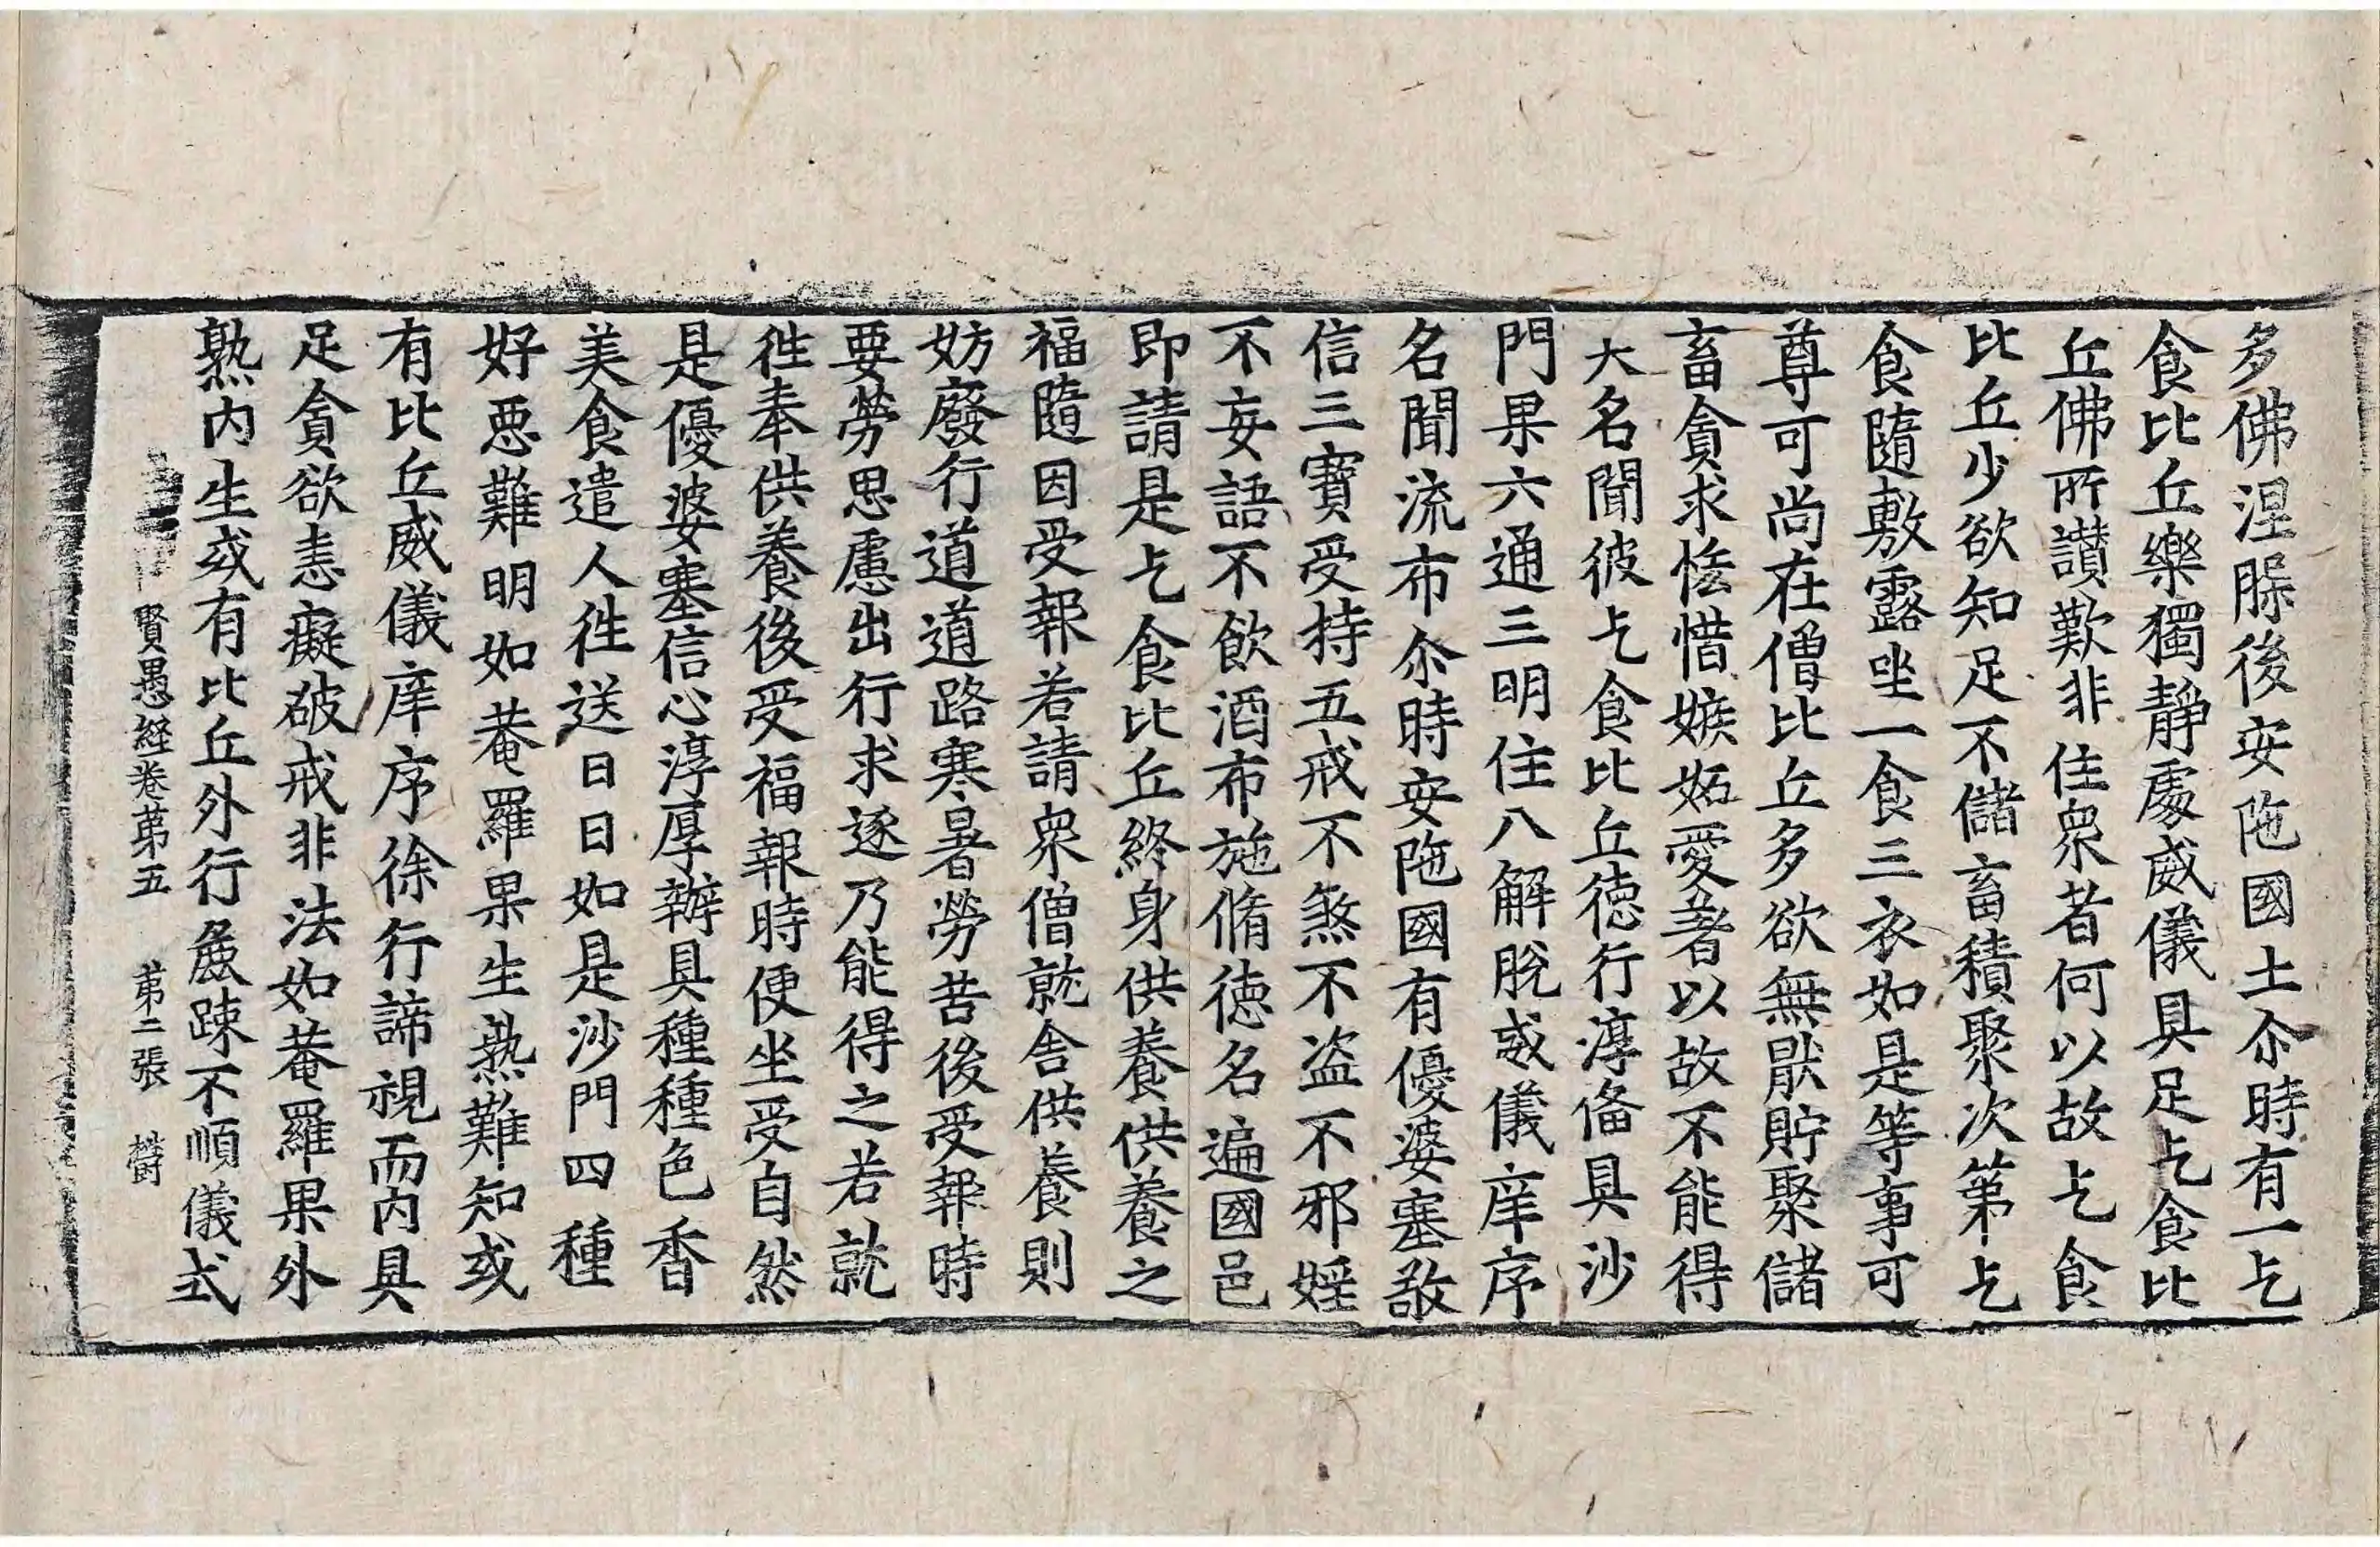 多佛涅脲後安陁國土尒時有一乞
食比丘樂獨靜處威儀具足乞食比
丘佛所讃歎非住衆者何以故乞食
比丘少欲知足不儲畜積聚次第乞
食隨敷露坐一食三衣如是等事可
尊可尚在僧比丘多欲無猒貯聚儲
畜貪求恡惜嫉妬愛著以故不能得
大名聞彼乞食比丘徳行淳俻具沙
門果六通三明住八解脫威儀庠序
名聞流布尒時安陁國有優婆塞敬
信三寶受持五戒不煞不盗不邪婬
不妄語不飲酒布施脩徳名遍國邑
即請是乞食比丘終身供養供養之
福隨因受報若請衆僧就舎供養則
妨廢行道道路寒暑勞苦後受報時
要勞思慮出行求逐乃能得之若就
徃奉供養後受福報時便坐受自然
是優婆塞信心淳厚辦具種種色香
美食遣人徃送日日如是沙門四種
好惡難明如菴羅果生熟難知或
有比丘威儀庠序徐行諦視而内具
足貪欲恚癡破戒非法如菴羅果外
熟内生或有比丘外行麁踈不順儀式
賢愚經卷苐五 苐二張 欝